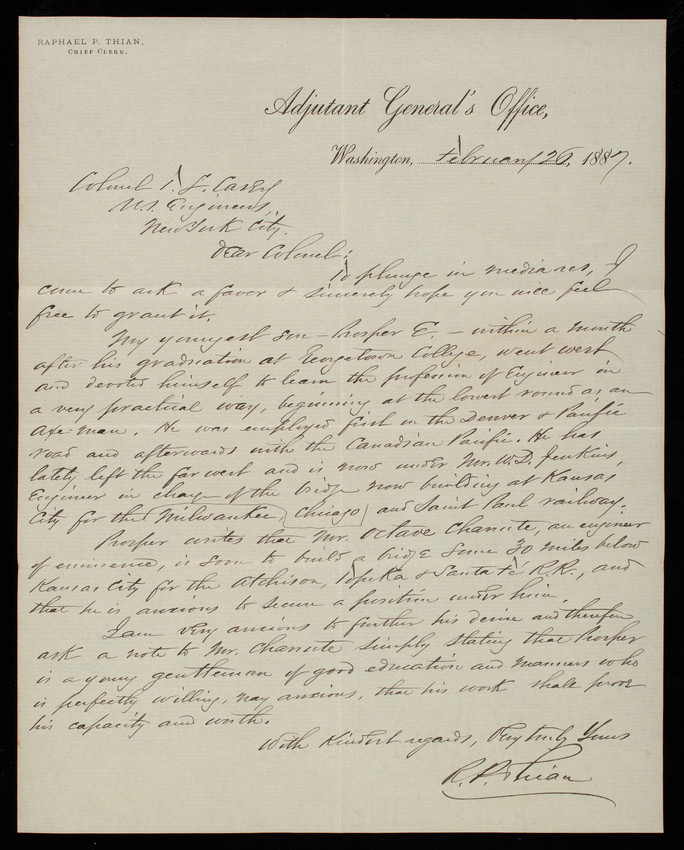 RAPHAEL P. THIAN,
CHIEF CLERK.
Adjutant General's Office,
Washington, February 26, 1887.
Colonel T. L. Casey
U.S. Engineers,
New York City.
Dear Colonel:
To plunge in medias res, I
come to ask a favor & sincerely hope you will feel
free to grant it.
My youngest son – Prosper E. – within a month
after his graduation at Georgetown College, went west
and devoted himself to learn the profession of Engineer in
a very practical way, beginning at the lowest round as an
axe-man. He was employed first on the Denver & Pacific
road and afterwards with the Canadian Pacific. He has
lately left the far west and is now under Mr. W. D. Jenkins,
Engineer in charge of the bridge now building at Kansas
City for the Milwaukee, Chicago and Saint Paul railway.
Prosper writes that Mr. Octave Chanute, an engineer
of eminence, is soon to build a bridge some 30 miles below
Kansas City for the Atchison, Topeka & Santa Fé R.R., and
that he is anxious to secure a position under him.
I am very anxious to further his desire and therefore
ask a note to Mr. Chanute simply stating that Prosper
is a young gentleman of good education and manners who
is perfectly willing, nay anxious, that his work shall prove
his capacity and worth.
With kindest regards, Very truly Yours
R. P. Thian